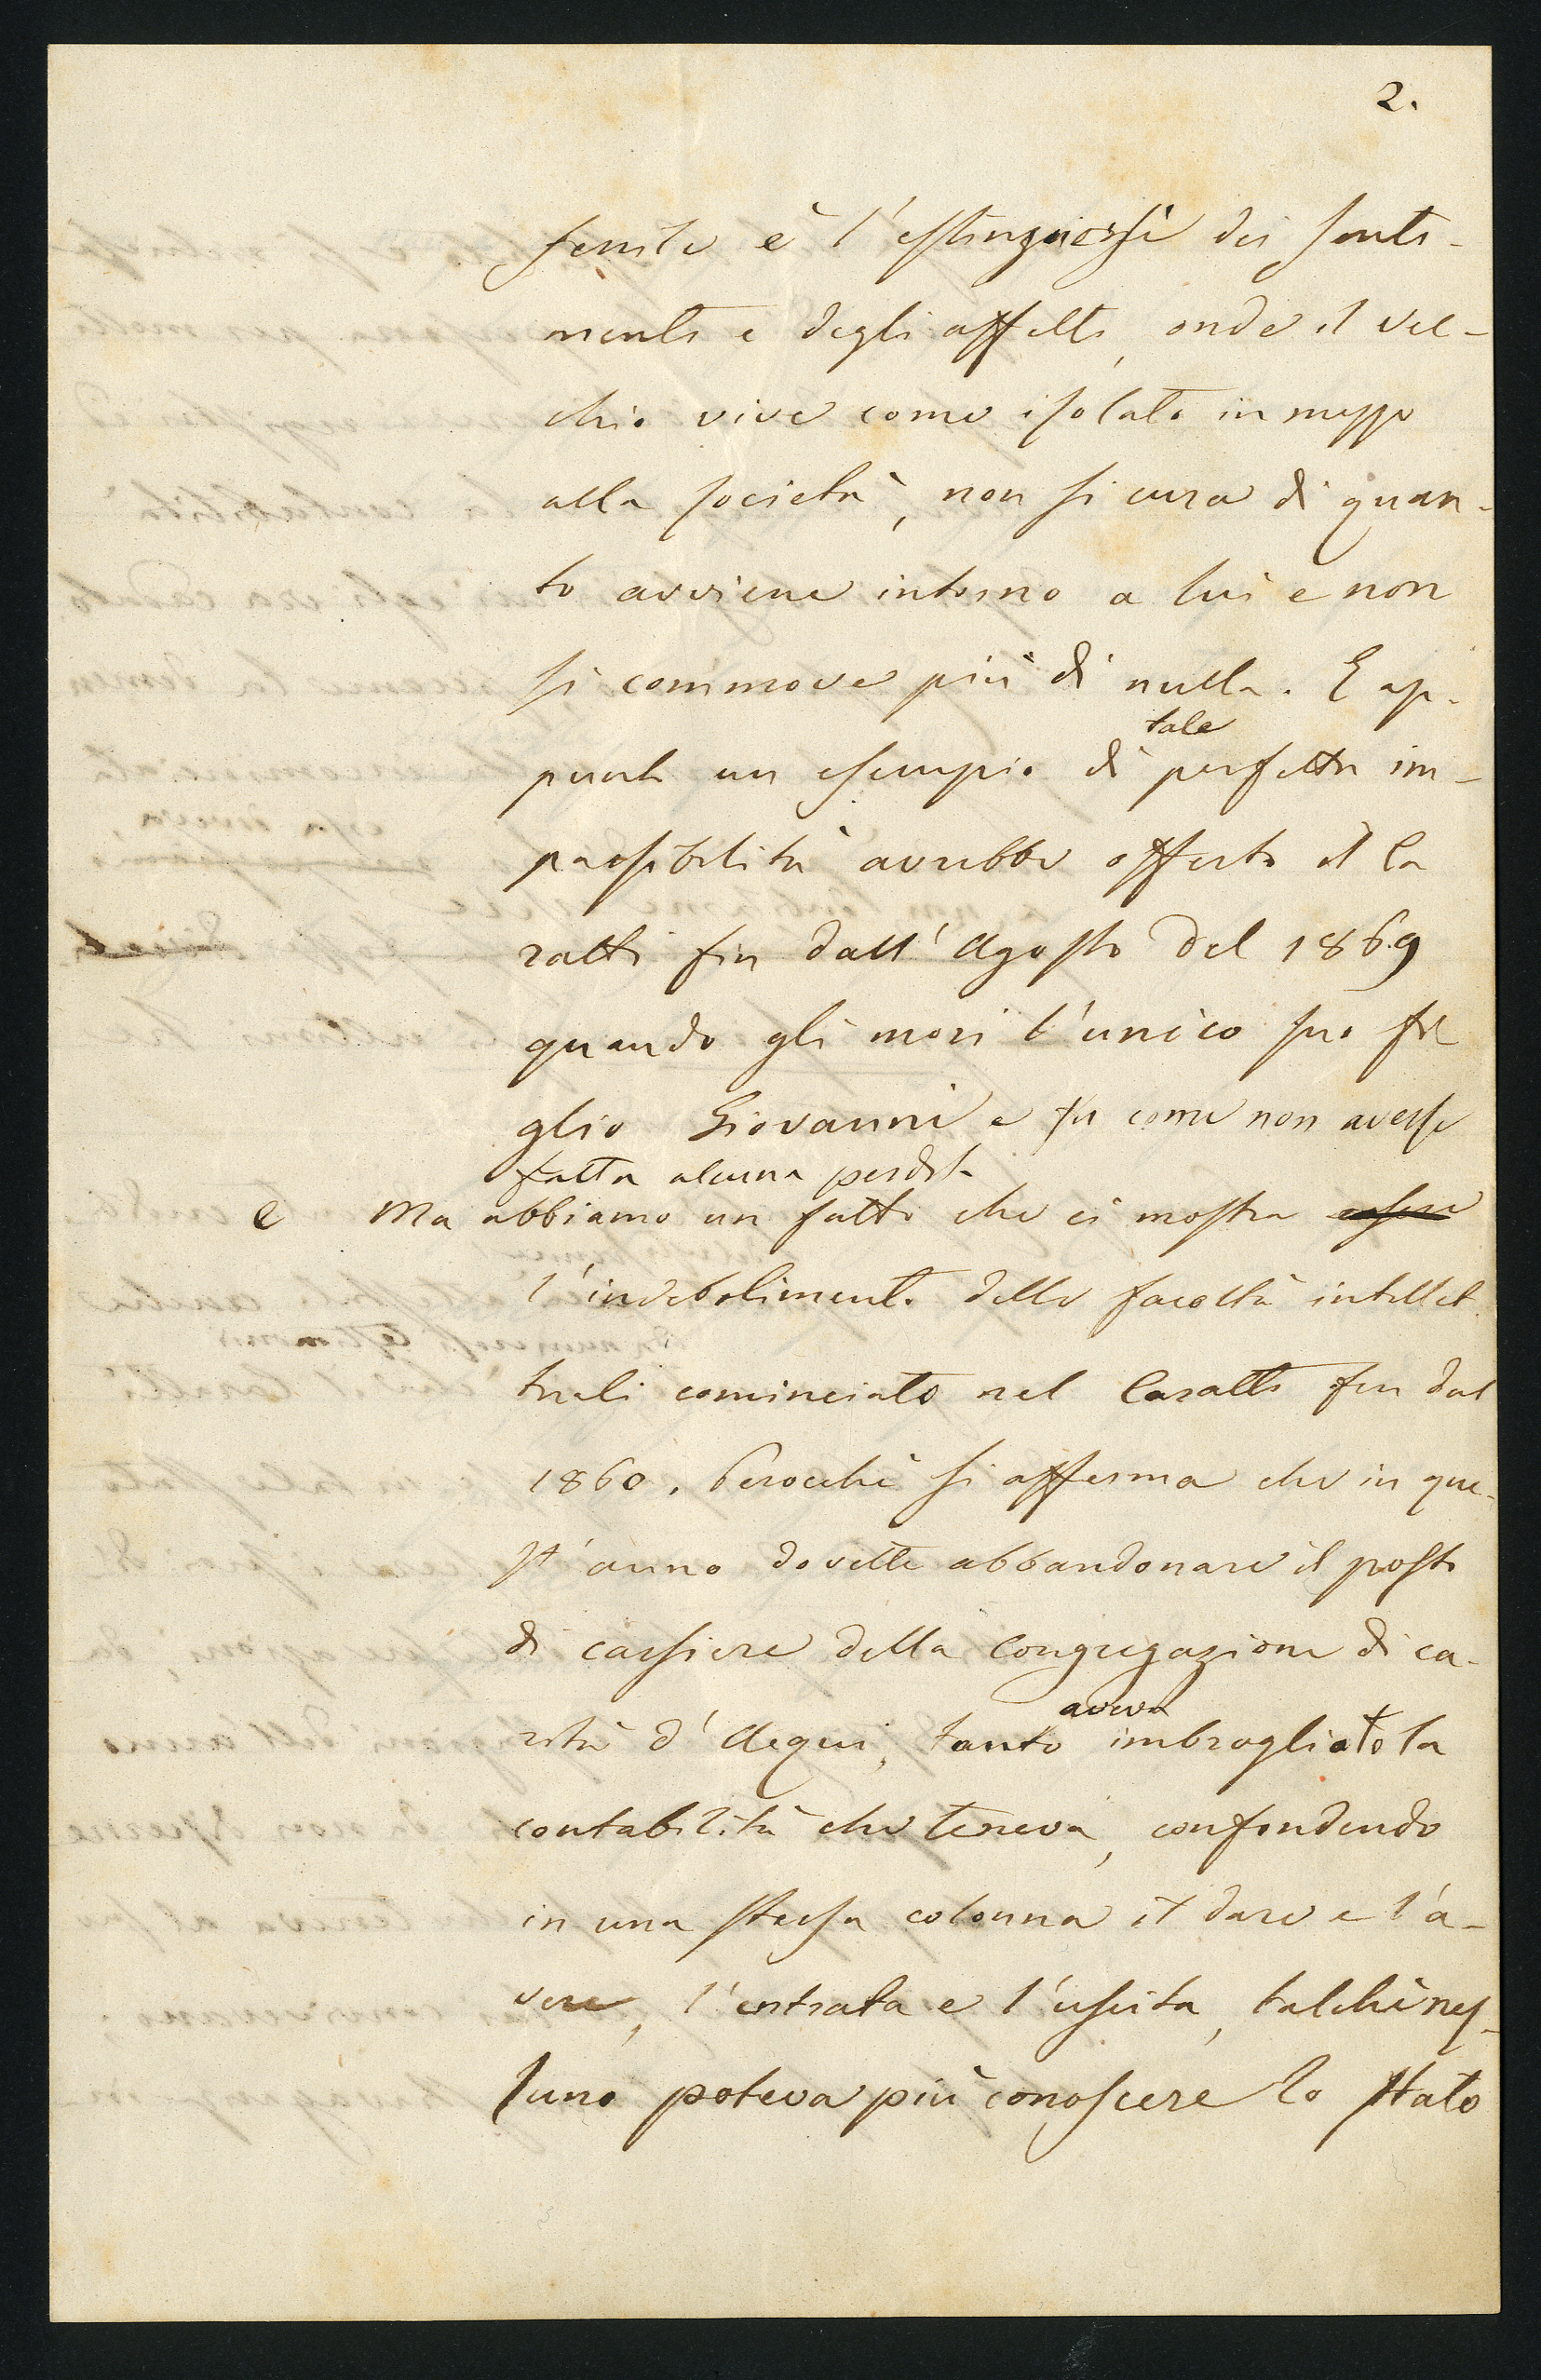 2.
senile è l'estinguersi dei senti-
menti e degli affetti, onde il vec-
chio vive come isolato in mezzo
alla società, non si cura di quan-
to avviene intorno a lui e non
si commove più di nulla. E ap-
tale
punto un esempio di perfetta im-
passibilità avrebbe offerto il Ca
ratti fin dall'Agosto del 1869
quando gli morì l'unico suo fi
glio Giovanni e fu come non avesse
fatta alcuna perdita
e Ma abbiamo un fatto che ci mostra essere
l'indebolimento delle facoltà intellet
tuali cominciato nel Caratti fin dal
1860. Perocchè si afferma che in que-
st'anno dovette abbandonare il posto
di cassiere della Congregazione di ca-
aveva
rità d'Acqui, tanto imbrogliato la
contabilità che teneva, confondendo
in una stessa colonna il dare e l'a-
vere, l'entrata e l'uscita, talchè nes-
suno poteva più conoscere lo stato